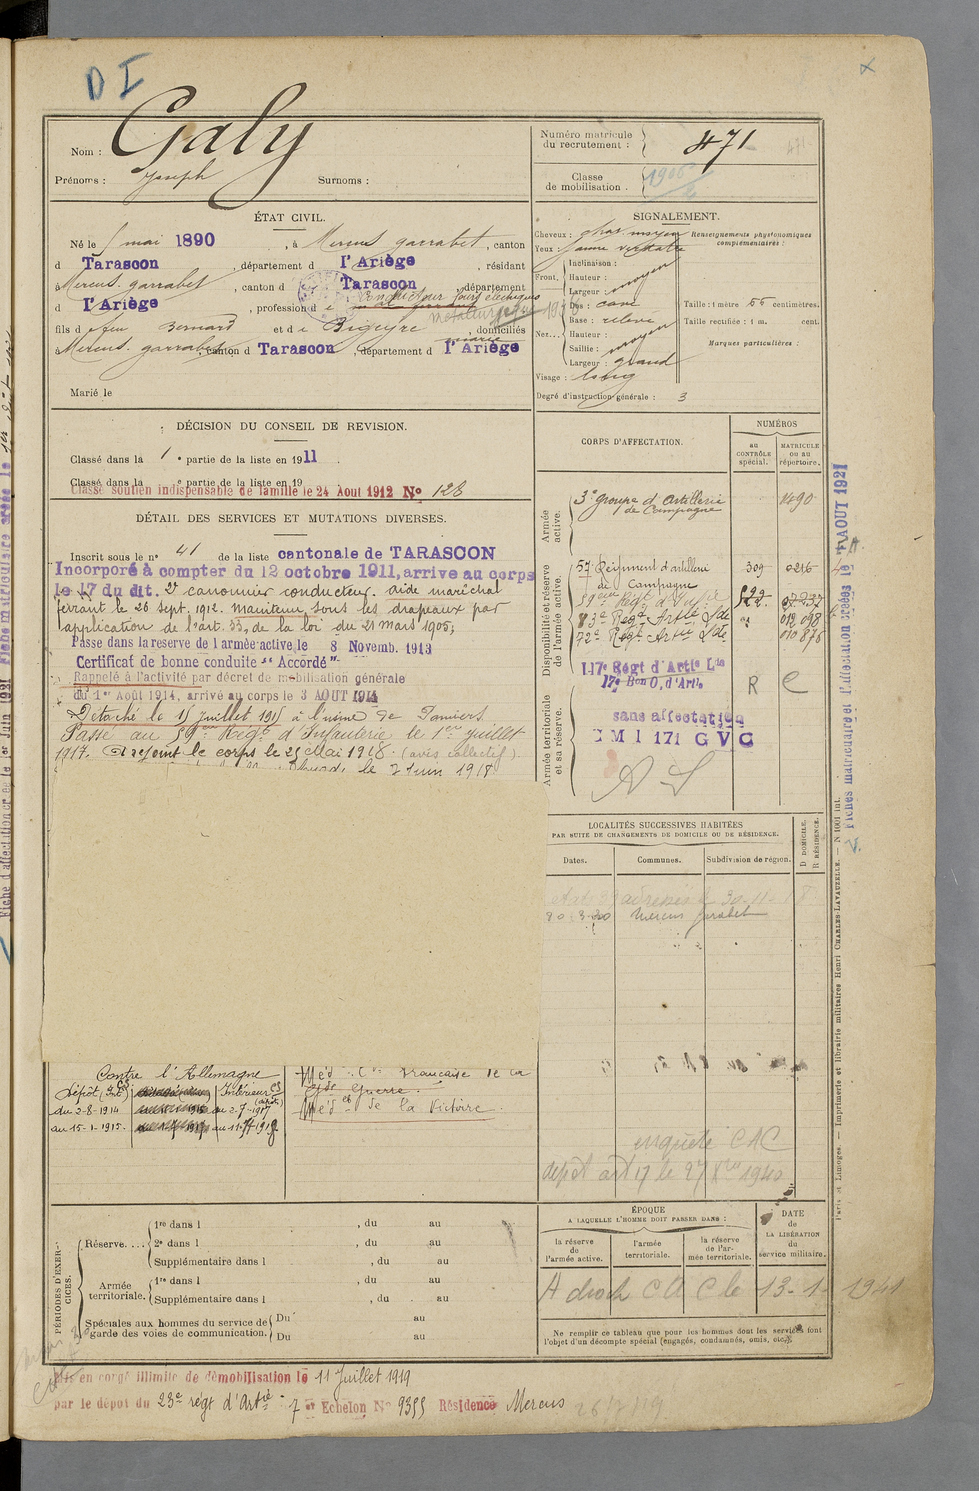 D I
Nom : Galy
Prénoms : Joseph Surnoms :
Numéro matricule du recrutement : 471
Classe de mobilisation .
ÉTAT CIVIL.
Né le 5 mai 1890 , à Mercus garrabet , canton
d Tarascon , département d l'Ariège , résidant
à Mercus. garrabet , canton d Tarascon , département
d l'Ariège , profession d
fils d feu Bernard et d e Bigeyre , domiciliés
à Mercus. garrabet , canton d Tarascon , département d l'Ariège
Marié le
SIGNALEMENT.
Cheveux : chat. moyen
Yeux : jaune verdatre
Renseignements physionomiques complémentaires :
Front. Inclinaison :
Hauteur : moyen
Largeur : moyen
Nez... Dos : cave
Base : relevé
Hauteur : moyen
Saillie : moyen
Largeur : grand
Visage : long
Taille : 1 mètre 55 centimètres.
Taille rectifiée : 1 m. cent.
Marques particulières :
Degré d'instruction générale : 3
DÉCISION DU CONSEIL DE REVISION.
Classé dans la 1 e partie de la liste en 1911 .
Classé dans la e partie de la liste en 19
Classé soutien indispensable de famille le 24 Aout 1912 No 128
DÉTAIL DES SERVICES ET MUTATIONS DIVERSES.
Inscrit sous le no 41 de la liste cantonale de TARASCON
Incorporé à compter du 12 octobre 1911, arrive au corps
le 17 du dit. 2e canonnier conducteur. aide maréchal
ferrant le 26 sept. 1912. Maintenu sous les drapeaux par
application de l'art. 33, de la loi du 21 mars 1905;
Passé dans la reserve de l'armée active le 8 Novemb. 1913
Certificat de bonne conduite "Accordé"
Rappelé à l'activité par décret de mobilisation générale
du 1er Août 1914, arrivé au corps le 3 AOUT 1914
Détaché le 15 juillet 1915 à l'usine de Pamiers
Passé au 59e Régt d'Infanterie le 1er juillet
1917. A rejoint le corps le 25 Mai 1918 (avis collectif)
le 2 Juin 1918
CORPS D'AFFECTATION.
NUMÉROS
au CONTRÔLE spécial.
MATRICULE ou au répertoire.
Armée active.
3e groupe d'artillerie de Campagne 1490
Disponibilité et réserve de l'armée active.
57 Régiment d'artillerie de campagne 309 0216
83e Regt Artie Lde 012 098
72e Regt Artie Lde 010 876
117e Régt d'Artie Lde
17e Bon O. d'Artie
R C
Armée territoriale et sa réserve.
sans affectation
D M 1 171 G V C
LOCALITÉS SUCCESSIVES HABITÉES
PAR SUITE DE CHANGEMENTS DE DOMICILE OU DE RÉSIDENCE.
Dates. Communes. Subdivision de région.
D DOMICILE.
R RÉSIDENCE.
Mercus Garabet
Contre l'Allemagne
Dépôt (Int) Intérieur CS
du 2-8-1914 au 2-7-1917
au 15-1-1915.
Méd. Cre Française de la
Gde Guerre.
Méd. de la Victoire.
enquête CAC
depot art 17 le 27 8bre 1940
PÉRIODES D'EXERCICES.
Réserve....
1re dans l , du au
2e dans l , du au
Supplémentaire dans l , du au
Armée territoriale.
1re dans l , du au
Supplémentaire dans l , du au
Spéciales aux hommes du service de garde des voies de communication.
Du au
Du au
ÉPOQUE
A LAQUELLE L'HOMME DOIT PASSER DANS :
la réserve de l'armée active.
l'armée territoriale.
la réserve de l'armée territoriale.
DATE de LA LIBÉRATION du service militaire.
A droit CAC le 13-1-1941
Ne remplir ce tableau que pour les hommes dont les services font
l'objet d'un décompte spécial (engagés, condamnés, omis, etc.).
Mis en congé illimité de démobilisation le 11 Juillet 1919
par le dépôt du 23e régt d'Artie 7e Echelon No 9355 Résidence Mercus
26/7/19
Paris et Limoges. — Imprimerie et librairie militaires Henri CHARLES-LAVAUZELLE. — N 1001 int.